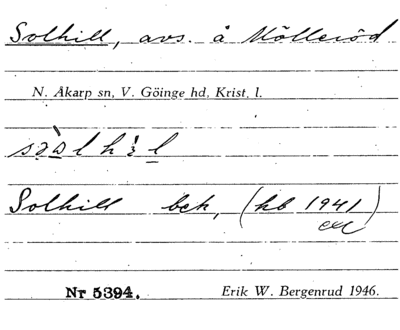 Solhill, avs. å Mölleröd
N. Åkarp sn, V. Göinge hd, Krist. l.
Solhill bek, (hb 1941)
Nr 5394. Erik W. Bergenrud 1946.